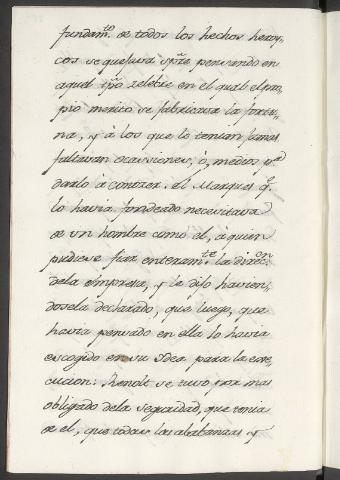 fundam.to de todos los hechos heroy,
cos se quejava spre penssando en
aquel tpo zelebre en el qual el pro,
pio merito se fabricava la fortu,
na, y à los que le tenian jamas
faltavan ocassiones, ò, medios p.a
darlo à conozer. El Marques q.e
lo havia sondeado necesitava
de vn hombre como el, à quien
pudiese fiar enteram.te la direc.on
dela empresa, y le dijo havien,
dosela declarado, que luego, que
havia pensado en ella lo havia
escogido en su Idea para la exe,
cucion: Renolt se tuvo por mas
obligado dela seguridad, que tenia
de el, que todas las alabanzas y